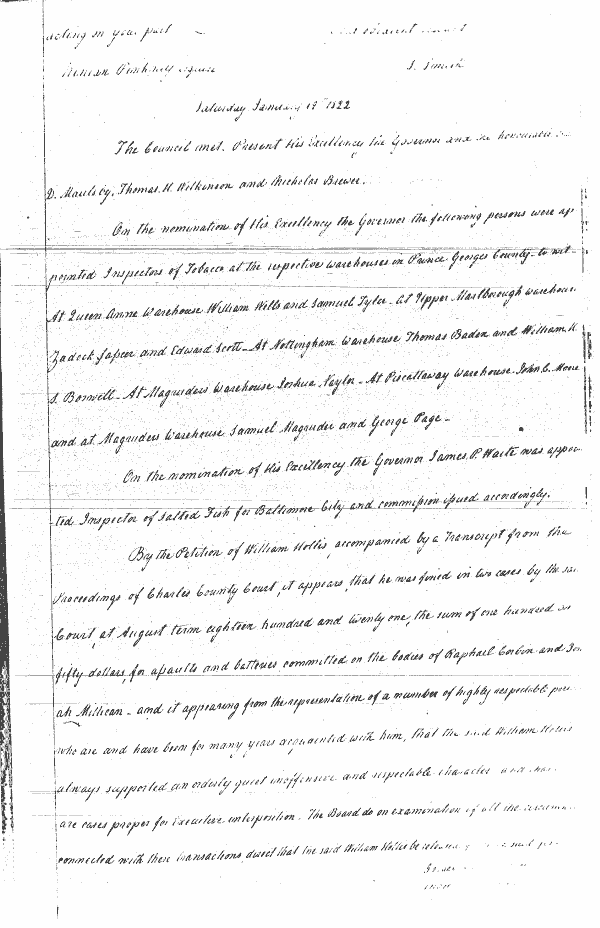 acting on your part
Ninian Pinkney Esquire J. Smith
Saturday January 19th 1822
The Council met. Present His Excellency the Governor and the honourable
D. Maulsby, Thomas H. Wilkinson and Nicholas Brewer.
On the nomination of His Excellency the Governor the following persons were ap
pointed Inspectors of Tobacco at the respective warehouses in Prince Georges County - to wit -
At Queen Anne Warehouse William Wells and Samuel Tyler - at Upper Marlborough warehouse
Zadock and Edward Scott - At Nottingham Warehouse Thomas Baden and William H.
S. Boswell - At Magruders Warehouse Joshua Naylor - At Piscattaway Warehouse John C. Moore
and at Magruders Warehouse Samuel Magruder and George Page -
On the nomination of His Excellency the Governor James P. Waite was appoin
ted Inspector of Salted Fish for Baltimore City and commission issued accordingly.
By the Petition of William Hollis, accompanied by a Transcript from the
Proceedings of Charles County Court, it appears, that he was fined in two cases by the said
Court, at August term eighteen hundred and twenty one, the sum of one hundred and
fifty dollars, for assaults and batteries committed on the bodies of Raphael Corbin and
ah Millican - and it appearing from the representation of a number of highly respectable
who are and have been for many years acquainted with him, that the said William Hollis
always supported an orderly quiet inoffensive and respectable character and
are cases proper for Executive interposition - The Board do on examination of all the
connected with these transactions direct that the said William Hollis be